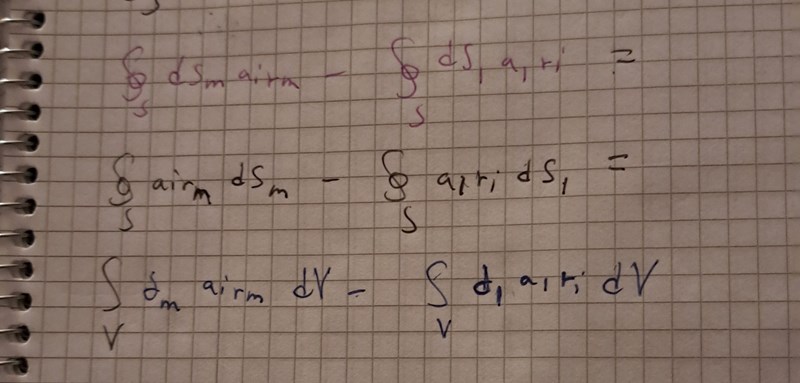 ∮_S dS_m a_i r_m − ∮_S dS_l a_l r_i =
∮_S a_i r_m dS_m − ∮_S a_l r_i dS_l =
∫_V ∂_m a_i r_m dV − ∫_V ∂_l a_l r_i dV